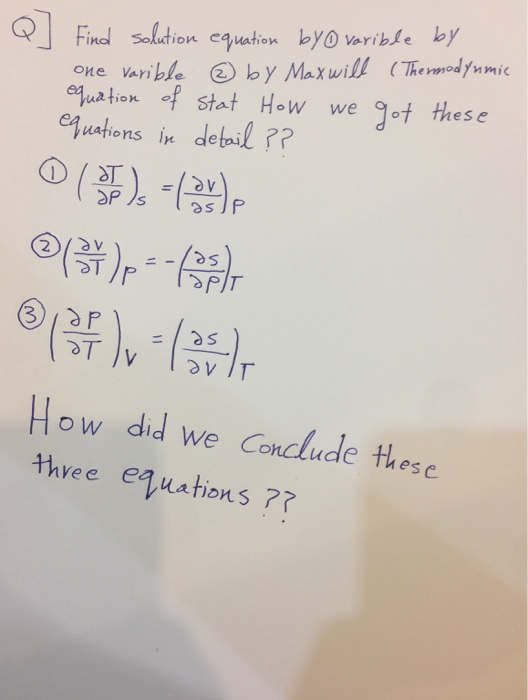 Q] Find solution equation by ① varible by
one varible ② by Maxwill (Thermodynmic
equation of stat How we got these
equations in detail ??
① (∂T/∂P)s = (∂v/∂s)P
② (∂v/∂T)P = -(∂s/∂P)T
③ (∂P/∂T)v = (∂s/∂v)T
How did we Conclude these
three equations ??